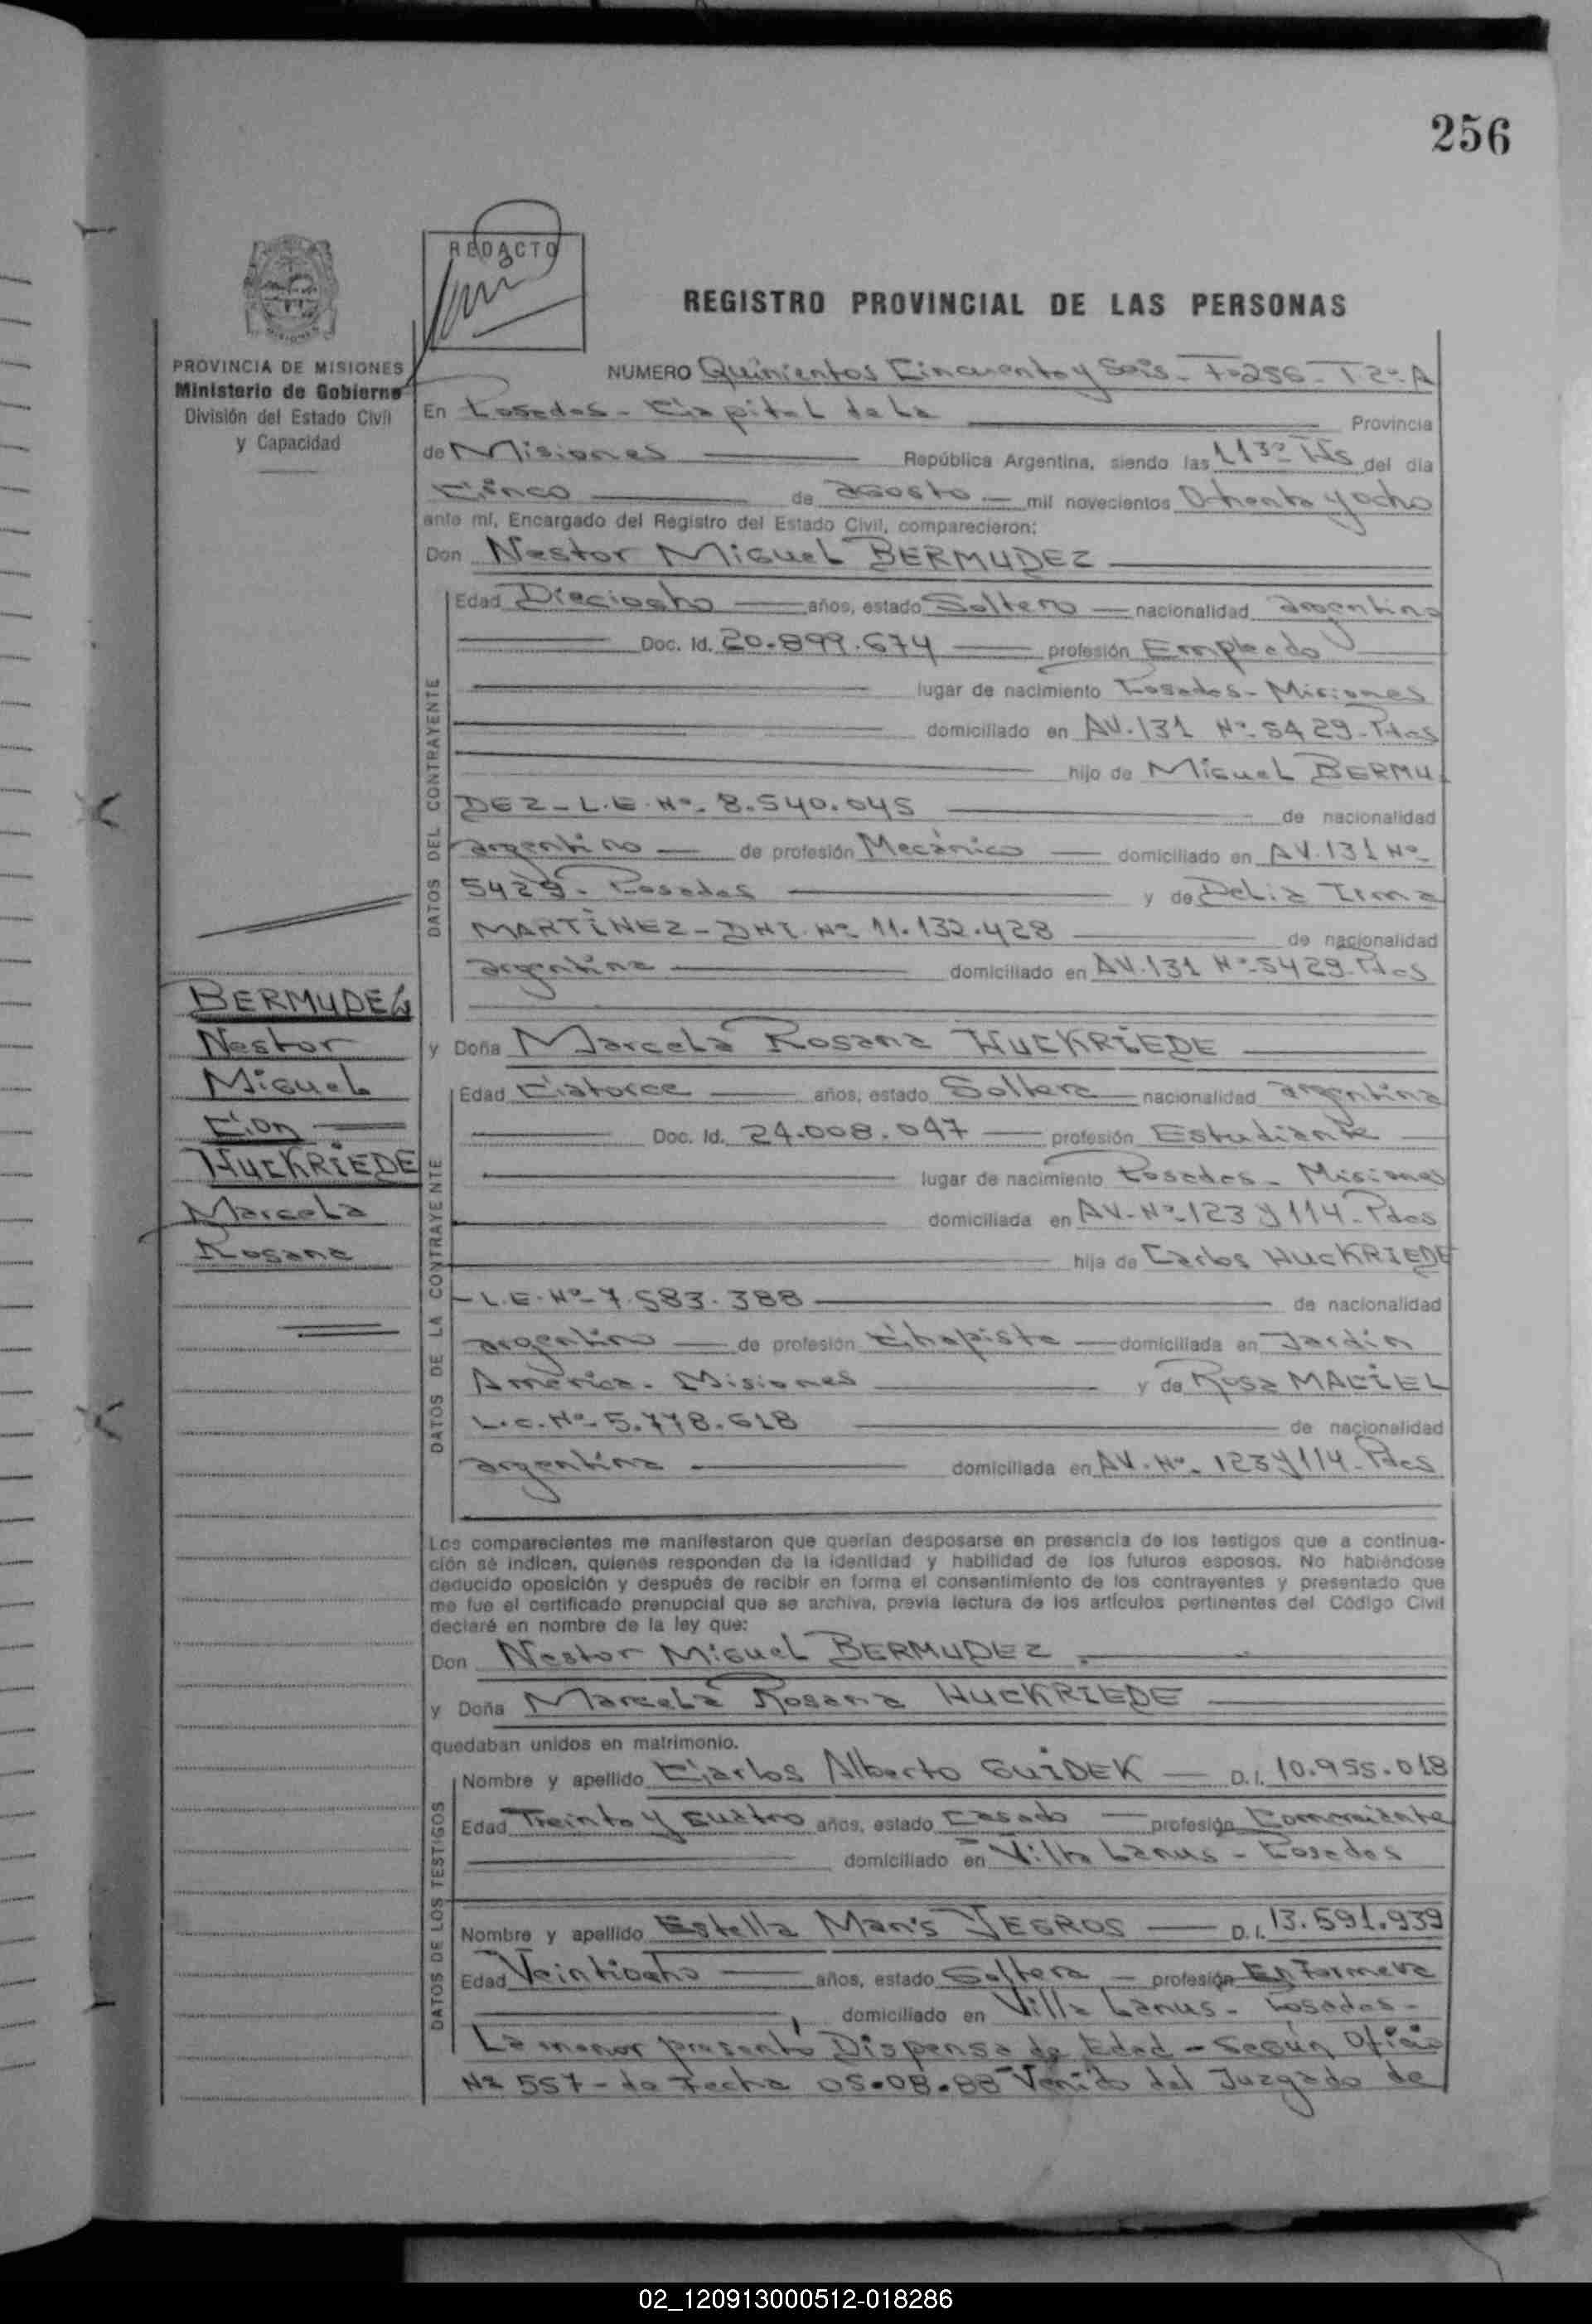 256
REDACTO
REGISTRO PROVINCIAL DE LAS PERSONAS
PROVINCIA DE MISIONES
Ministerio de Gobierno
División del Estado Civil
y Capacidad
NUMERO Quinientos Cincuenta y Seis - Fº 256 - T. 2º - A
En Posadas - Capital de La Provincia
de Misiones República Argentina, siendo las 1130 Hs del día
Cinco de agosto mil novecientos Ochenta y ocho
ante mí, Encargado del Registro del Estado Civil, comparecieron:
Don Nestor Miguel BERMUDEZ
DATOS DEL CONTRAYENTE
Edad Dieciocho años, estado Soltero nacionalidad argentina
Doc. Id. 20.899.674 profesión Empleado
lugar de nacimiento Posadas - Misiones
domiciliado en AV. 131 Nº 5429 - Pdas
hijo de Miguel BERMU
DEZ - L.E. Nº 8.540.045 de nacionalidad
argentino de profesión Mecánico domiciliado en AV. 131 Nº
5429 - Posadas y de Delia Irma
MARTÍNEZ - DNI. Nº 11.132.428 de nacionalidad
argentina domiciliado en AV. 131 Nº 5429 - Pdas
BERMUDEZ
Nestor
Miguel
Con
HUCKRIEDE
Marcela
Rosana
y Doña Marcela Rosana HUCKRIEDE
DATOS DE LA CONTRAYENTE
Edad Catorce años, estado Soltera nacionalidad argentina
Doc. Id. 24.008.047 profesión Estudiante
lugar de nacimiento Posadas - Misiones
domiciliada en AV. Nº 123 y 114 - Pdas
hija de Carlos HUCKRIEDE
- L.E. Nº 7.583.388 de nacionalidad
argentino de profesión Chapista domiciliada en Jardín
América - Misiones y de Rosa MACIEL
L.C. Nº 5.778.618 de nacionalidad
argentina domiciliada en AV. Nº 123 y 114 - Pdas
Los comparecientes me manifestaron que querían desposarse en presencia de los testigos que a continua-
ción se indican, quienes responden de la identidad y habilidad de los futuros esposos. No habiéndose
deducido oposición y después de recibir en forma el consentimiento de los contrayentes y presentado que
me fue el certificado prenupcial que se archiva, previa lectura de los artículos pertinentes del Código Civil
declaré en nombre de la ley que:
Don Nestor Miguel BERMUDEZ
y Doña Marcela Rosana HUCKRIEDE
quedaban unidos en matrimonio.
DATOS DE LOS TESTIGOS
Nombre y apellido Carlos Alberto GUIDEK D.I. 10.955.018
Edad Treinta y Cuatro años, estado Casado profesión Comerciante
domiciliado en Villa Lanus - Posadas
Nombre y apellido Estella Maris YEGROS D.I. 13.591.939
Edad Veintiocho años, estado Soltera profesión Enfermera
domiciliado en Villa Lanus - Posadas -
La menor presentó Dispensa de Edad - Según Oficio
Nº 557 - de Fecha 05.08.88 Venido del Juzgado de
02_120913000512-018286